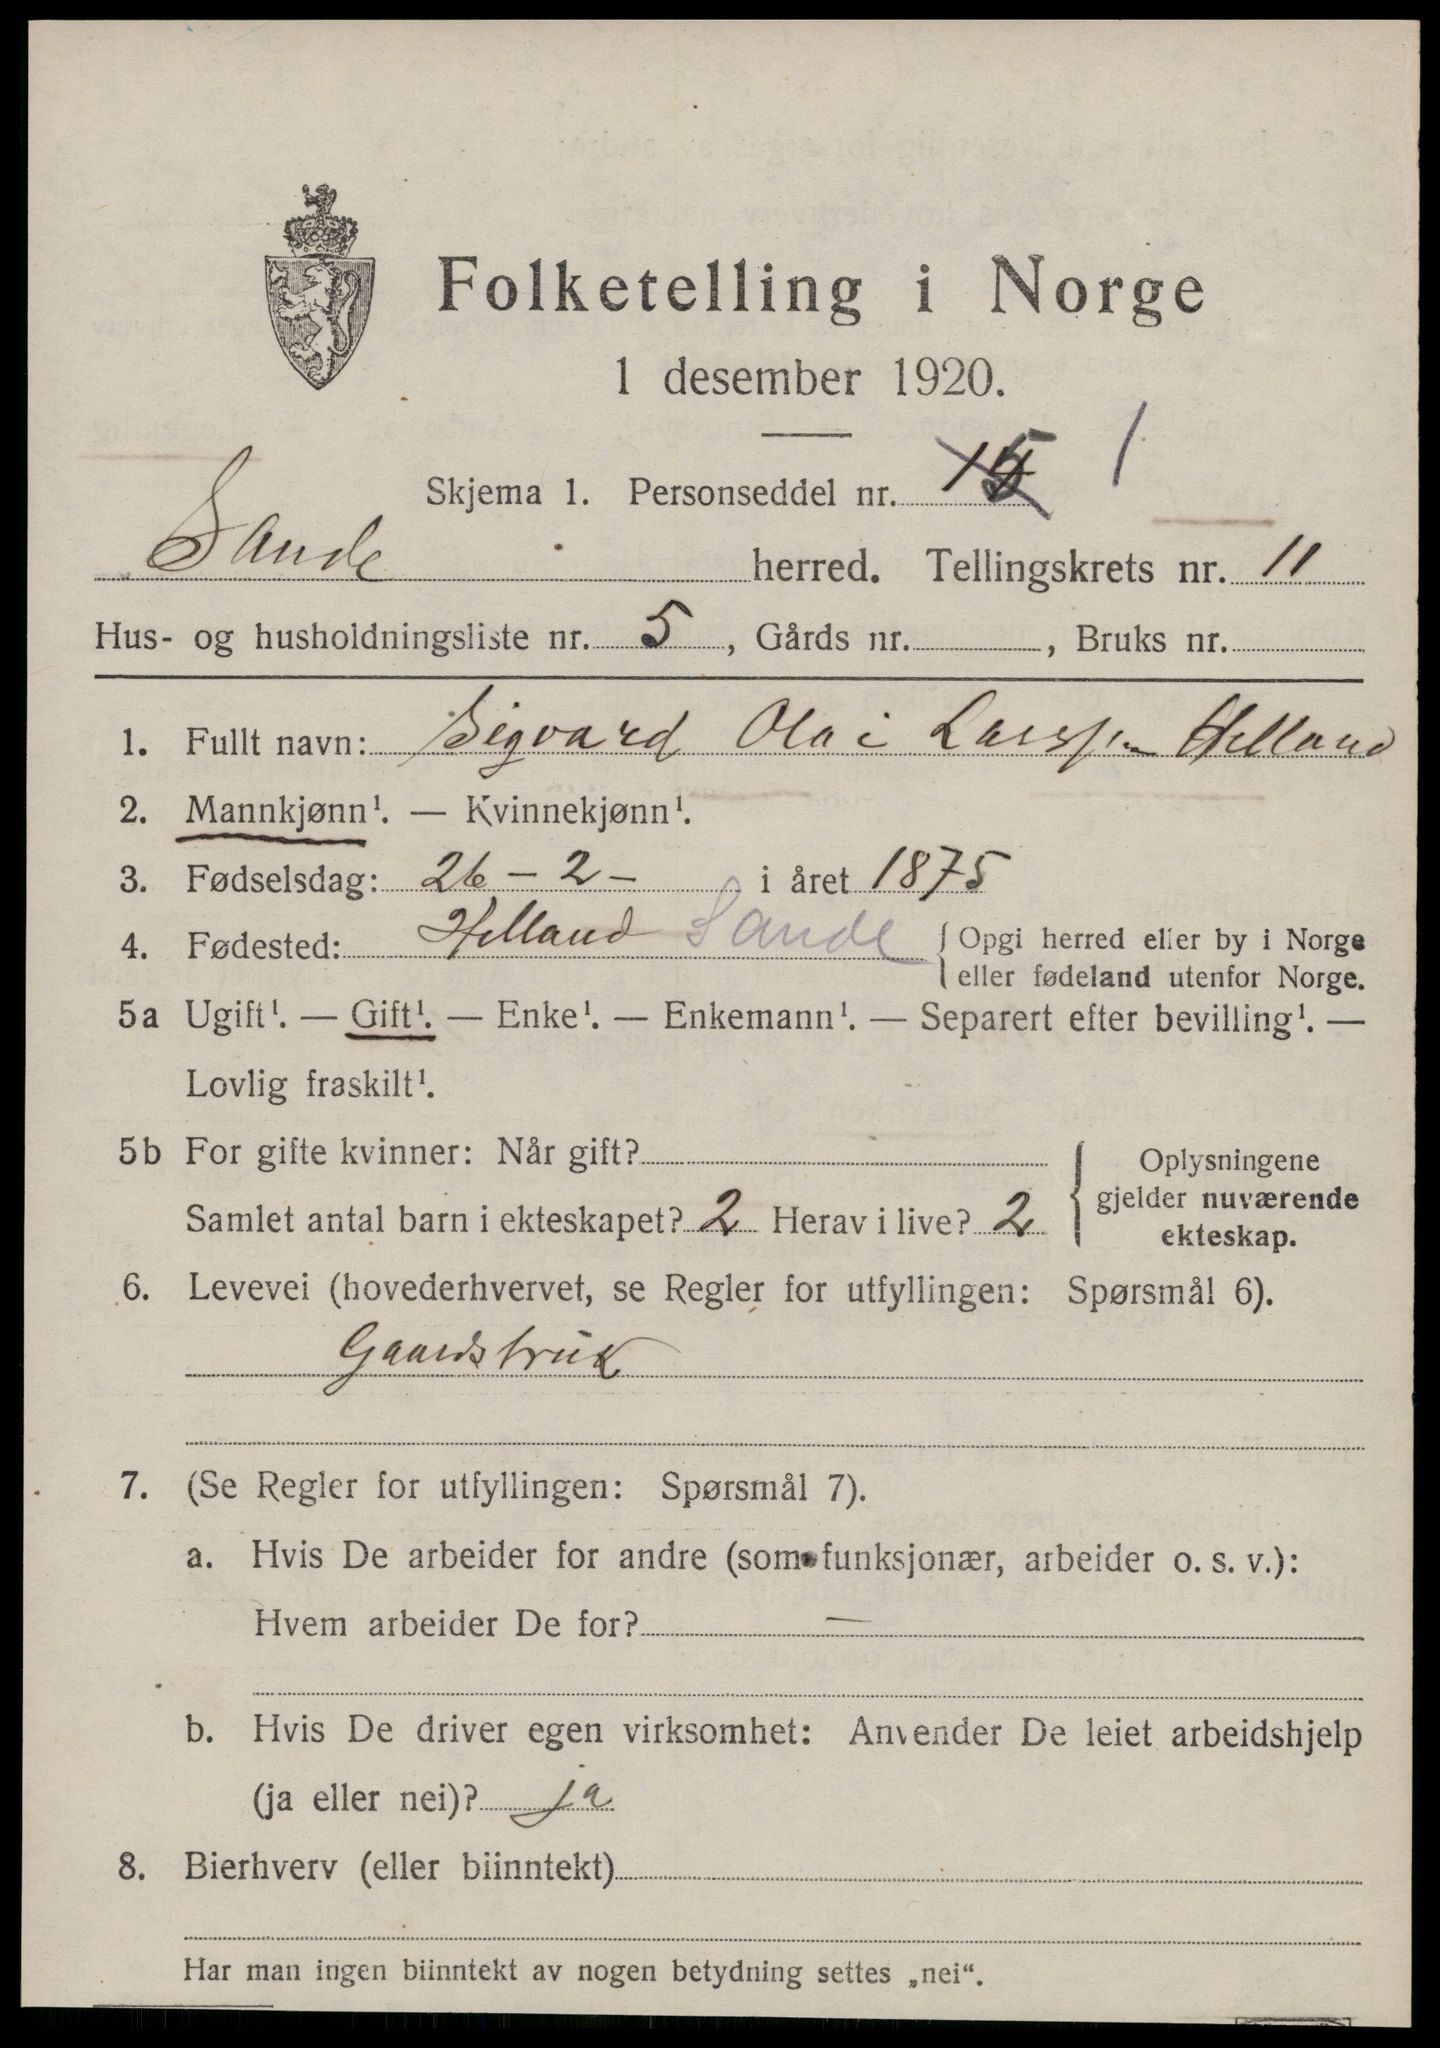 Folketelling i Norge
1 desember 1920.
Skjema 1. Personseddel nr. 1
Sande herred. Tellingskrets nr. 11
Hus- og husholdningsliste nr. 5, Gårds nr. , Bruks nr.
1. Fullt navn: Sigvard Olai Larsen Helland
2. Mannkjønn¹. — Kvinnekjønn¹.
3. Fødselsdag: 26 - 2 - i året 1875
4. Fødested: Helland Sande { Opgi herred eller by i Norge
eller fødeland utenfor Norge.
5a Ugift¹. — Gift¹. — Enke¹. — Enkemann¹. — Separert efter bevilling¹. —
Lovlig fraskilt¹.
5b For gifte kvinner: Når gift? { Oplysningene
gjelder nuværende
Samlet antal barn i ekteskapet? 2 Herav i live? 2
ekteskap.
6. Levevei (hovederhvervet, se Regler for utfyllingen: Spørsmål 6).
Gaardsbruk
7. (Se Regler for utfyllingen: Spørsmål 7).
a. Hvis De arbeider for andre (som funksjonær, arbeider o. s. v.):
Hvem arbeider De for? —
b. Hvis De driver egen virksomhet: Anvender De leiet arbeidshjelp
(ja eller nei)? ja
8. Bierhverv (eller biinntekt)
Har man ingen biinntekt av nogen betydning settes „nei“.